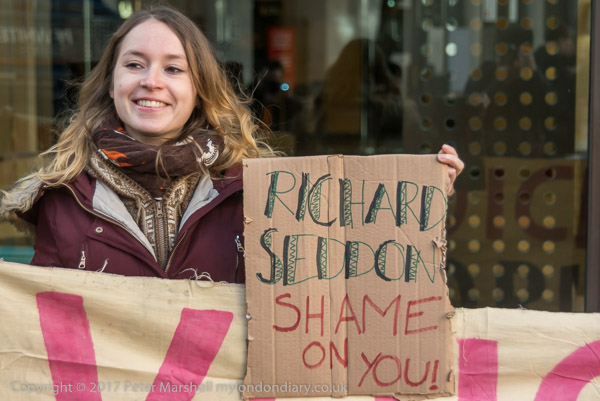 RICHARD
SEDDON
SHAME
ON YOU!
Copyright © 2017 Peter Marshall mylondondiary.co.uk